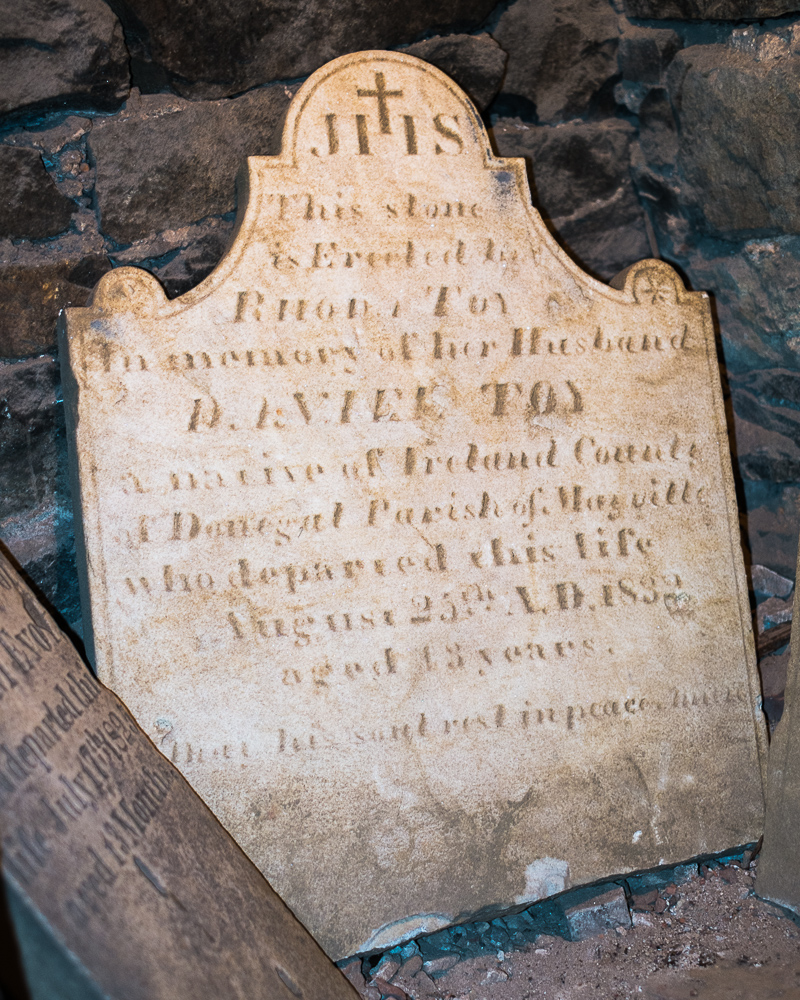 IHS
This stone
is Erected by
RHODA TOY
In memory of her Husband
DANIEL TOY
a native of Ireland County
of Donegal Parish of Moyville
who departed this life
August 25th A.D. 1832
aged 43 years.
May his soul rest in peace.
departed this
life July 1
aged 13 Months